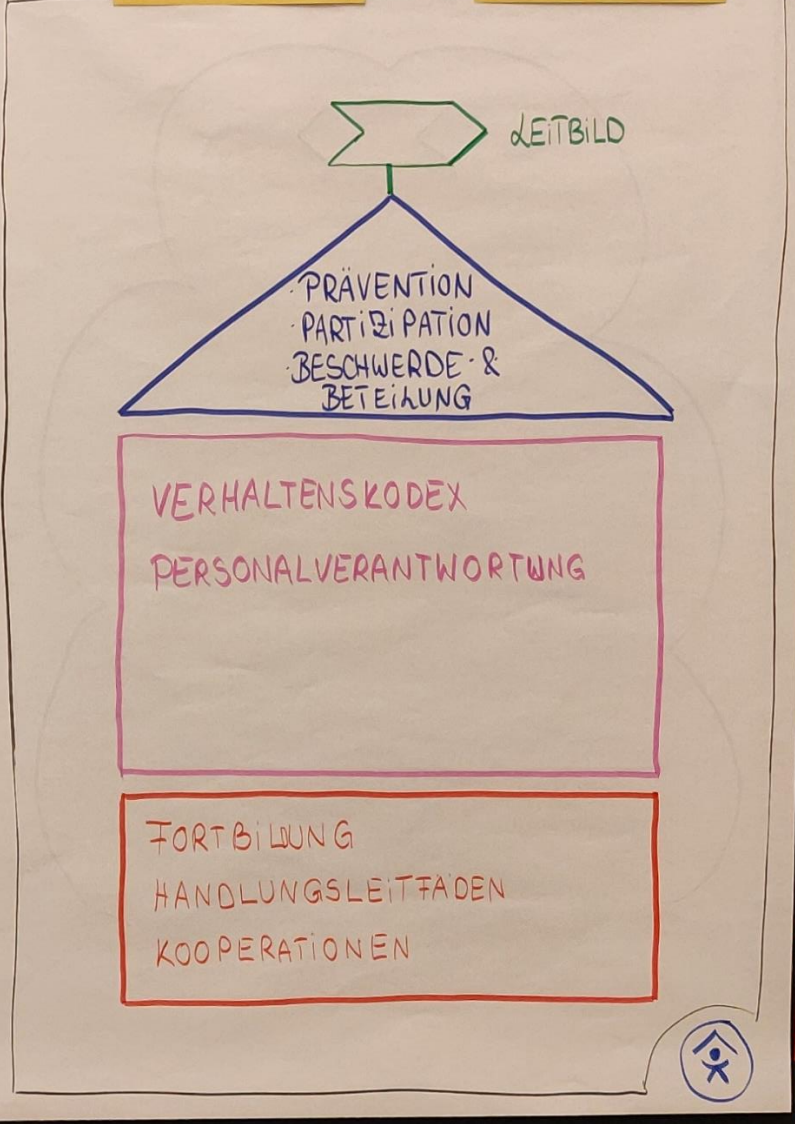 LEITBILD
· PRÄVENTION
· PARTIZIPATION
· BESCHWERDE- &
BETEILUNG
VERHALTENSKODEX
PERSONALVERANTWORTUNG
FORTBILDUNG
HANDLUNGSLEITFÄDEN
KOOPERATIONEN